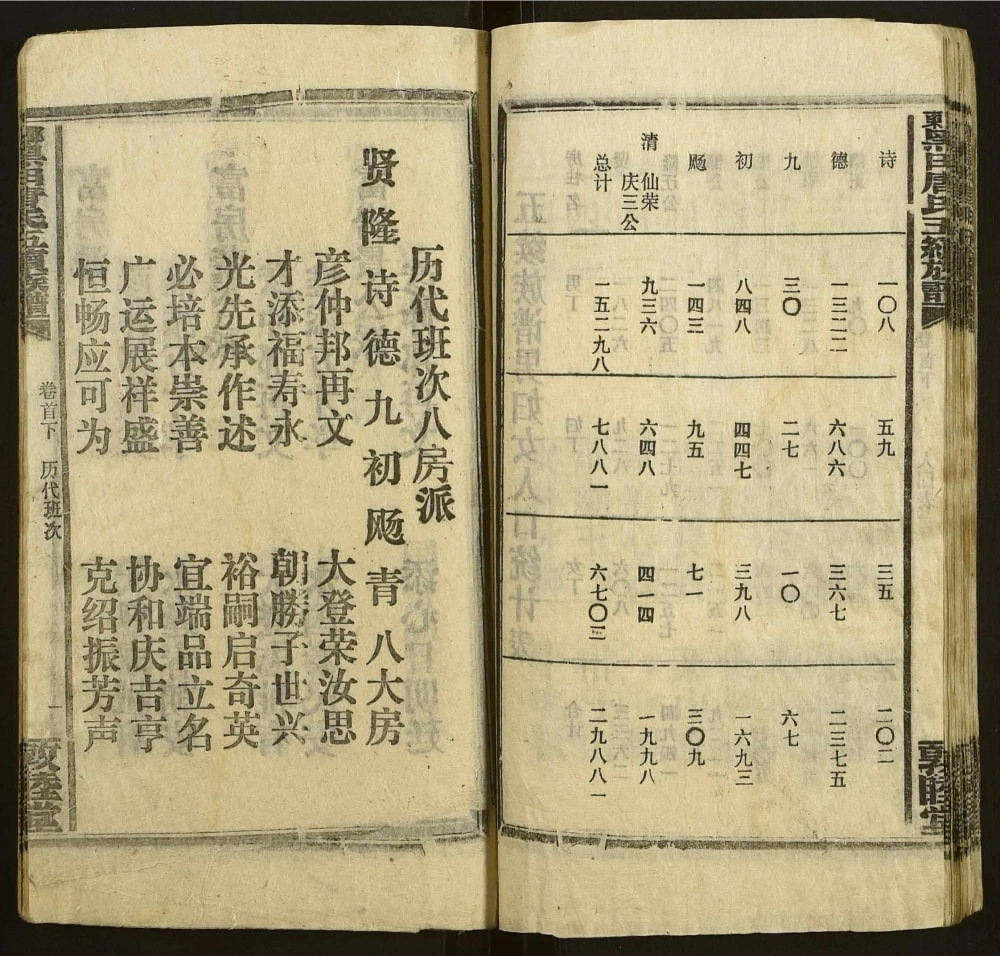 黑田唐氏五續族譜 敦睦堂
诗 一〇八 五九 三五 二〇二
德 一三二二 六八六 三六七 二三七五
九 三〇 二七 一〇 六七
初 八四八 四四七 三九八 一六九三
飏 一四三 九五 七一 三〇九
清 仙荣 庆三公 九三六 六四八 四一四 一九九八
总计 一五二九八 七八八一 六七〇二 二九八八一
历代班次八房派
贤隆诗德九初飏青八大房
彦仲邦再文 大登荣汝思
才添福寿永 朝勝子世兴
光先承作述 裕嗣启奇英
必培本崇善 宜端品立名
广运展祥盛 协和庆吉亨
恒畅应可为 克绍振芳声
黑田唐氏五續族譜 卷首下 历代班次 一 敦睦堂